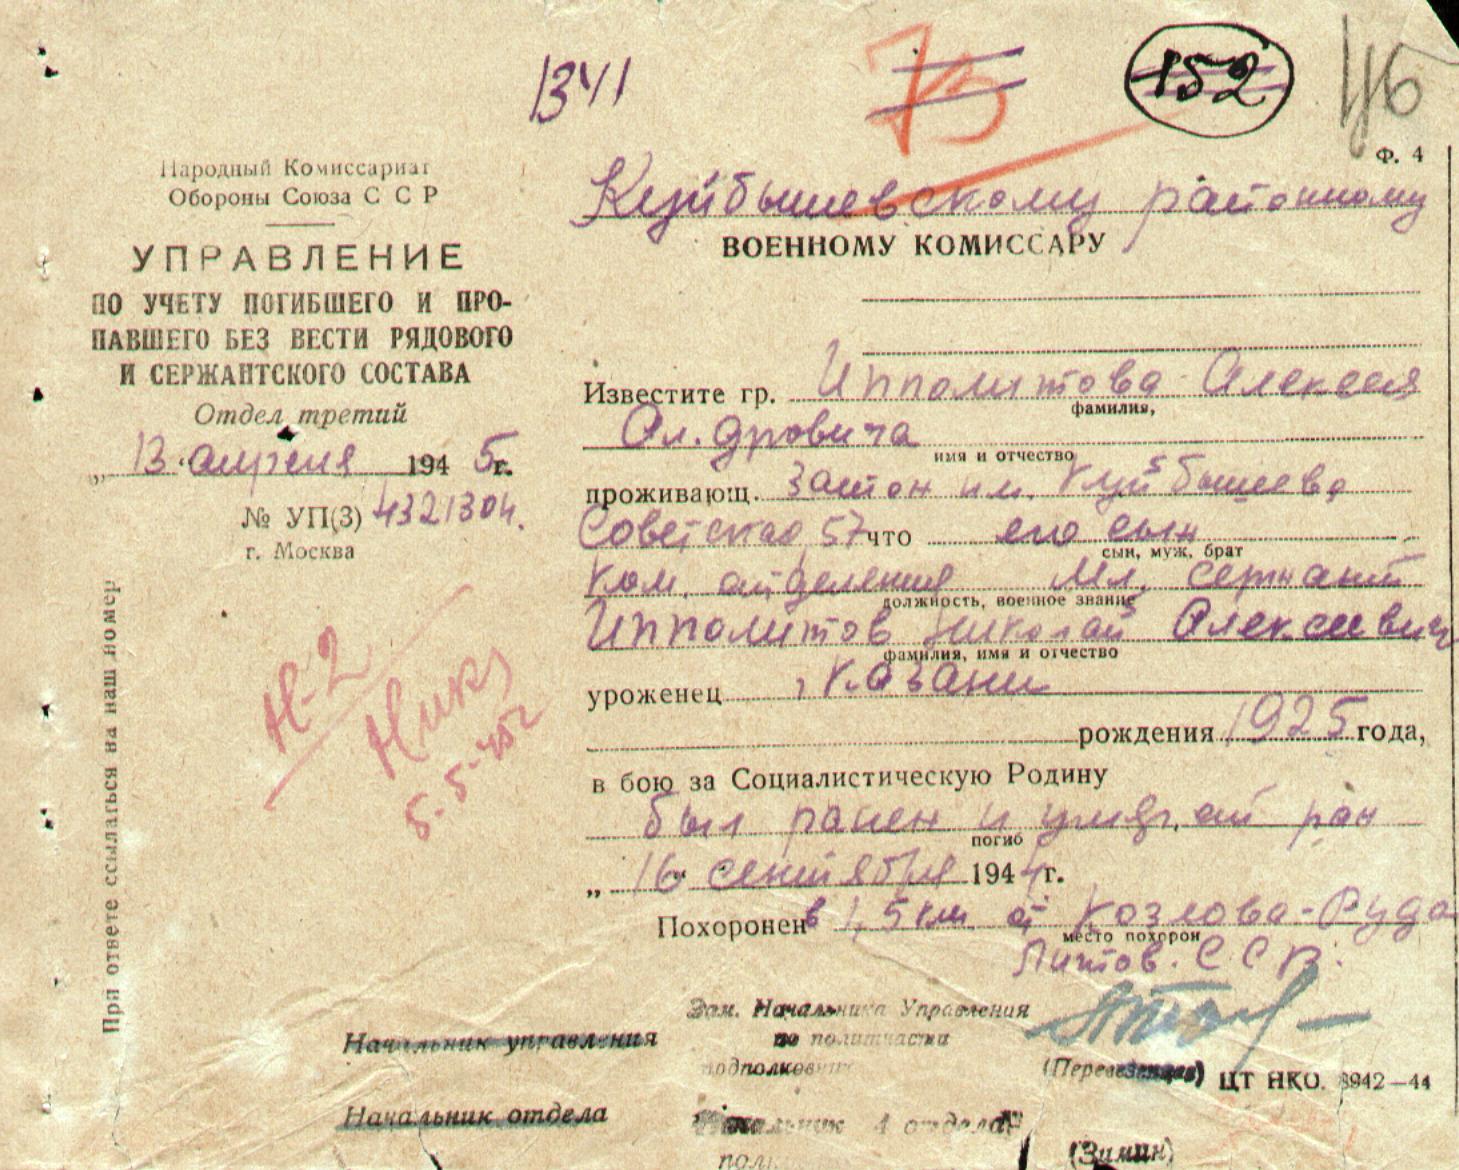 1341
73
152
46
Ф. 4
Народный Комиссариат
Обороны Союза С С Р
УПРАВЛЕНИЕ
ПО УЧЕТУ ПОГИБШЕГО И ПРО-
ПАВШЕГО БЕЗ ВЕСТИ РЯДОВОГО
И СЕРЖАНТСКОГО СОСТАВА
Отдел третий
„13“ апреля 1945г.
№ УП(3) 4321304.
г. Москва
При ответе ссылаться на наш номер
Н-2
5-5-45г
Куйбышевскому районному
ВОЕННОМУ КОМИССАРУ
Известите гр. Ипполитова Алексея
фамилия,
Ал.дровича
имя и отчество
проживающ. Затон им. Куйбышева
Советская 57 что его сын
сын, муж, брат
Ком. отделения Мл. сержант
должность, военное звание
Ипполитов Николай Алексеевич
фамилия, имя и отчество
уроженец г. Казани
рождения 1925 года,
в бою за Социалистическую Родину
был ранен и умер от ран
погиб
„16“ сентября 1944г.
Похоронен в 1,5 км. от Козлова-Руда
место похорон
Литов. С С Р.
Зам. Начальника Управления
по политчасти
Начальник управления
подполковник
ЦТ НКО. 8942—44
Начальник отдела
Начальник 4 отдела
(Зимин)